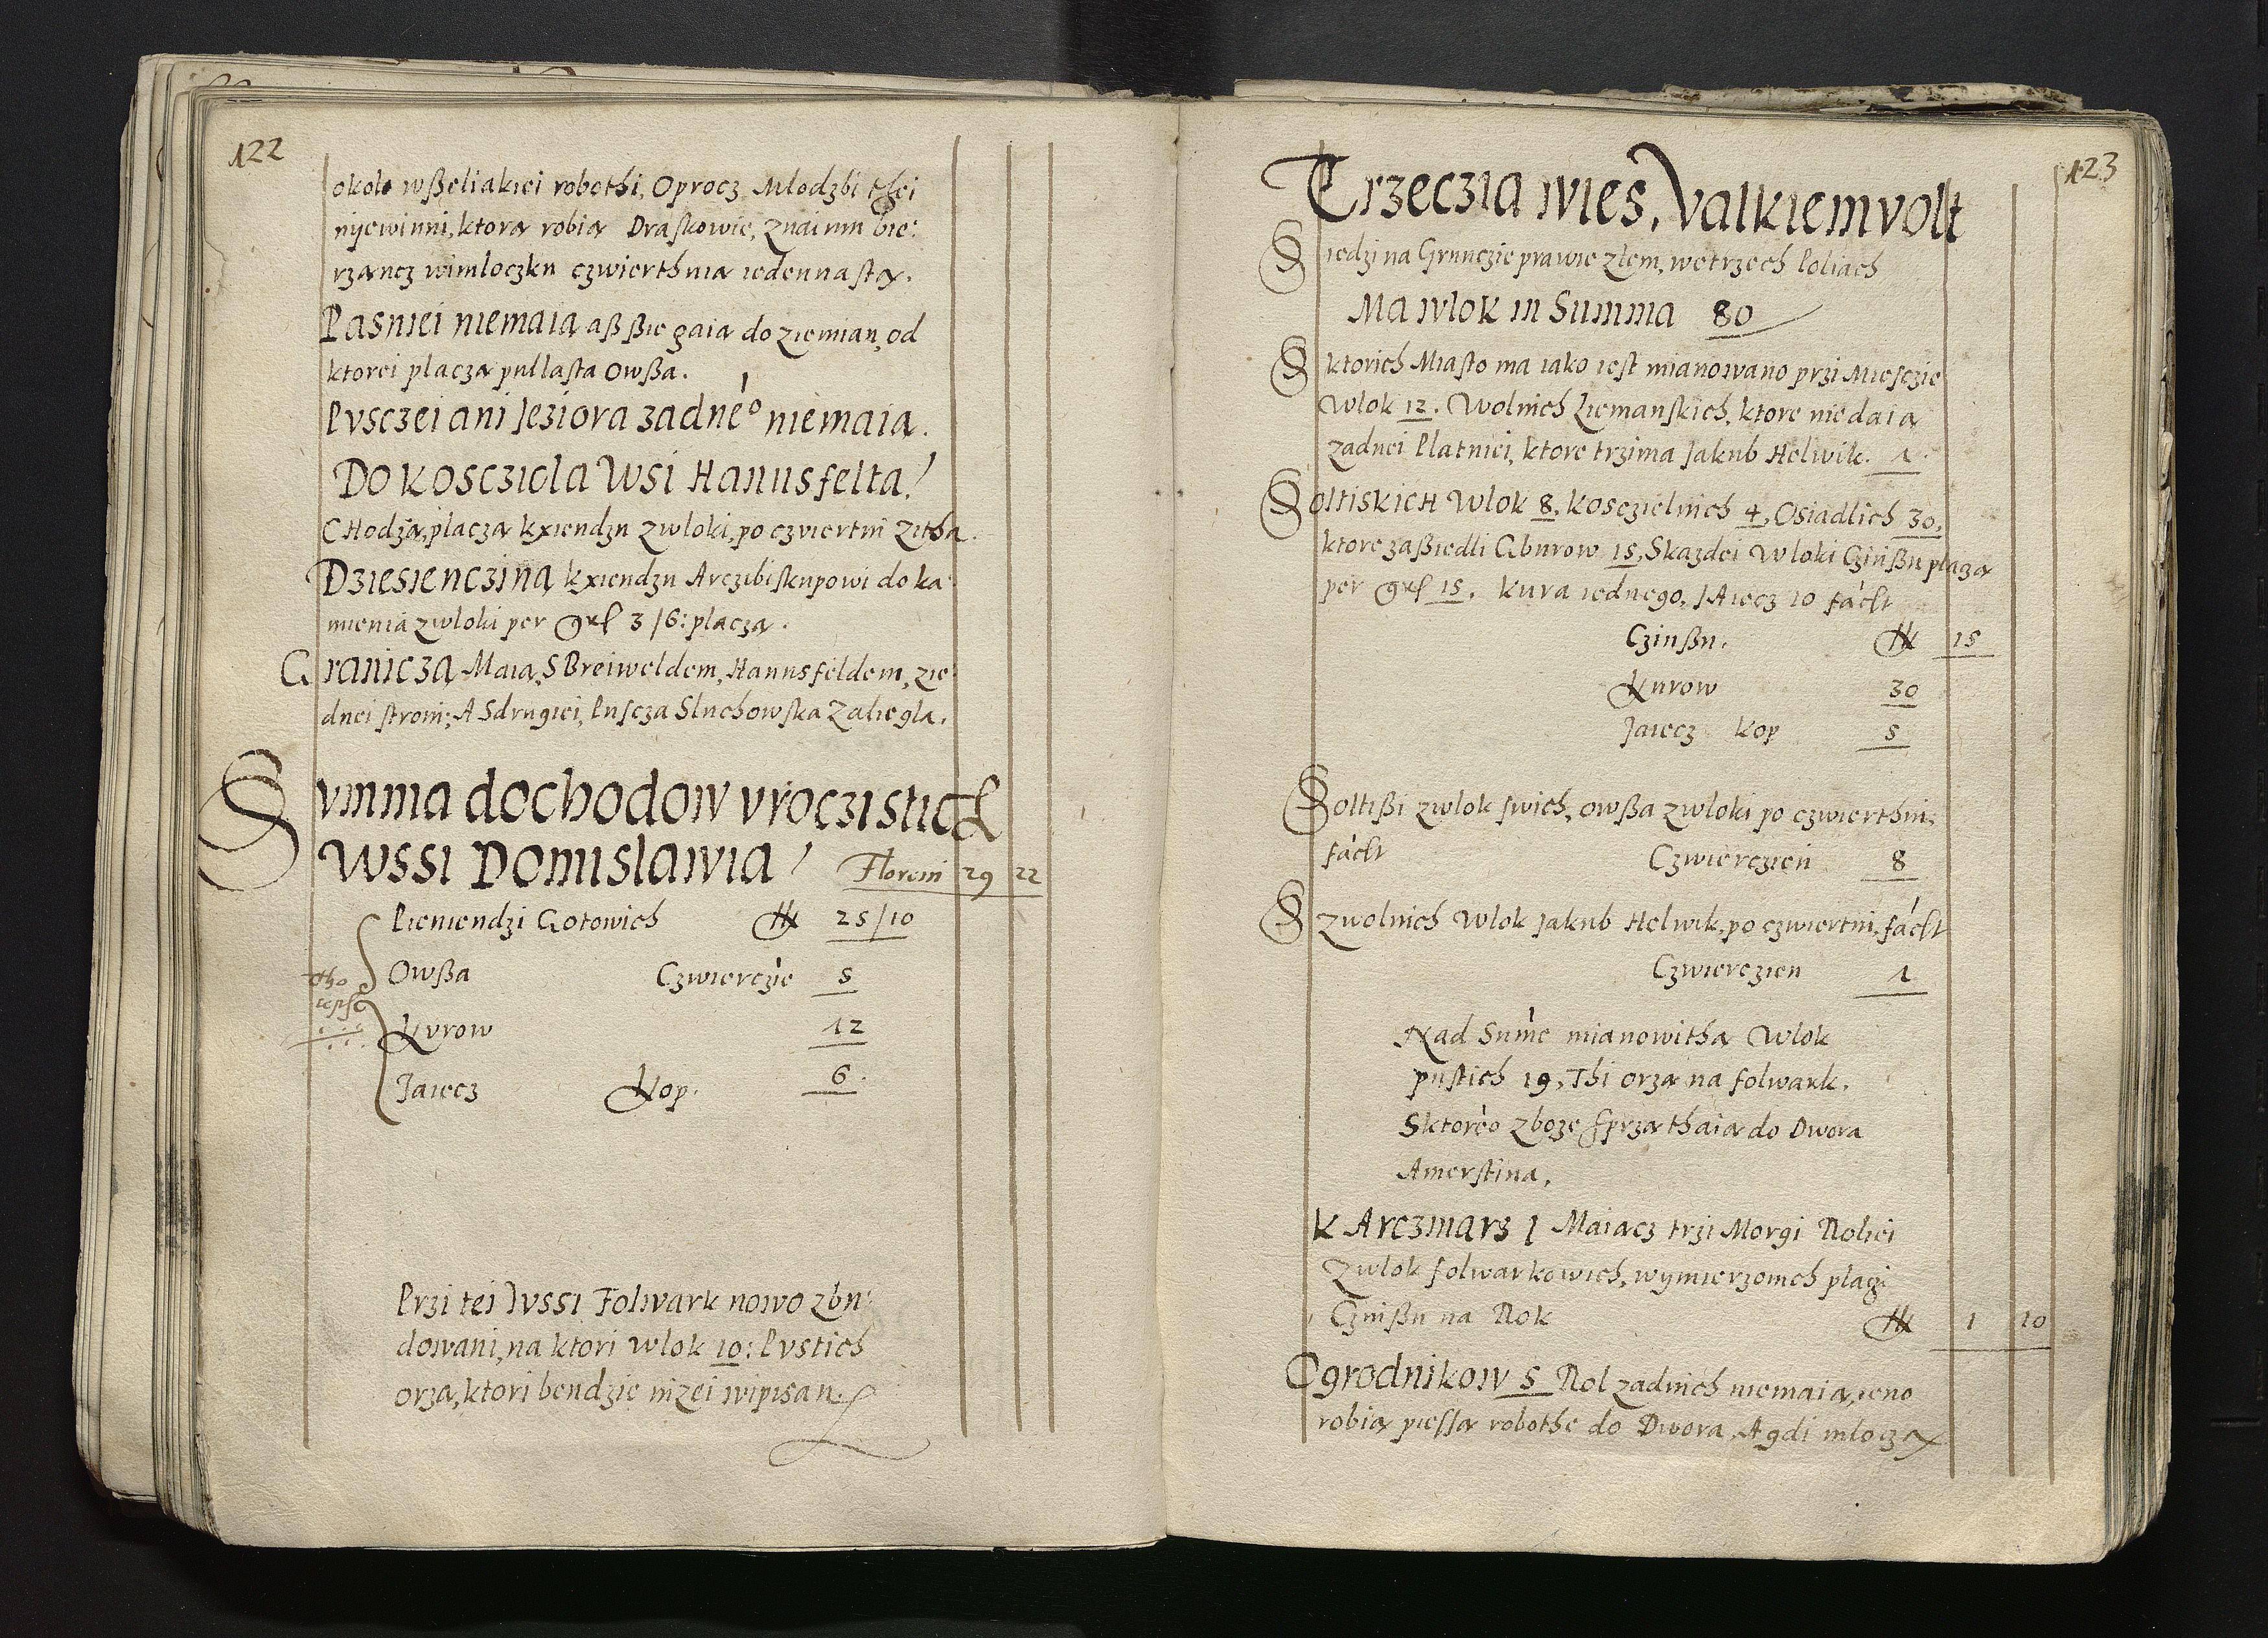 122
okolo wßeliakiei robothi, Oprocz Mlodzbi thei
nijewinni, ktora robia Draskowie, Znaimu bie:
rzancz wimloczku czwierthnia iedennasta.
Pasniei niemaia aß ßie gaia do ziemian, od
ktorei placza pullasta Owßa.
Pusczei ani Jeziora zadneo niemaia.
Do Kosciola Wsi Hanusfelta
CHodza, placza kxiendzu zwloki, po czwiertni Zitha.
Dziesienczina kxiendzu Arczibiskupowi do ka
mienia zwloki per grß 3/6: placza.
Granicza Maia, S Breiweldem, Hanusfeldem, zie
dnei stroni; A Sdrugiei, Puscza Sluchowska Zaliegla.
Summa dochodow vroczistich
Wssi Domislawia Floreni 29 22
Pieniendzi Gotowich 25/10
Owßa Czwierczie 5
Kurow 12
Jaiecz Kop. 6.
Przi tei Wssi Folwark nowo zbu:
dowani, na ktori wlok 10: Pustich
orza, ktori bendzie nizei wipisan.
123
Trzeczia wies, Valkiemvolt
Siedzi na Grunczie prawie zlem, wetrzech Poliach
Ma wlok in Summa 80
S ktorich Miasto ma iako iest mianowano przi Miesczie
Wlok 12. Wolnich Ziemanskich, ktore niedaia
zadnei Platniei, ktore trzima Jakub Helwik. 1.
Soltiskich Wlok 8, Kosczielnich 4, Osiadlich 30,
ktore zaßiedli Gburow 15, Skazdei Wloki Czinßu placza
per grß 15. Kura iednego, JAiecz 10 facit
Czinßu. 15
Kurow 30
Jaiecz Kop 5
Soltißi zwlok swich, owßa zwloki po czwierthni;
facit Czwierczien 8
S zwolnich Wlok Jakub Helwik, po czwiertni, facit
Czwierczien 1
Nad Sume mianowitha Wlok
pustich 19, Thi orza na folwark.
Sktoreo zboze sprzathaia do Dwora
Amerstina.
KArczmarz 1 Maiacz trzi Morgi Roliei
Zwlok folwarkowich, wymierzonich placzi
Czinßu na Rok 1 10
Ogrodnikow 5 Rol zadnich niemaia, ieno
robia piessa robothe do Dwora, A gdi mlocza